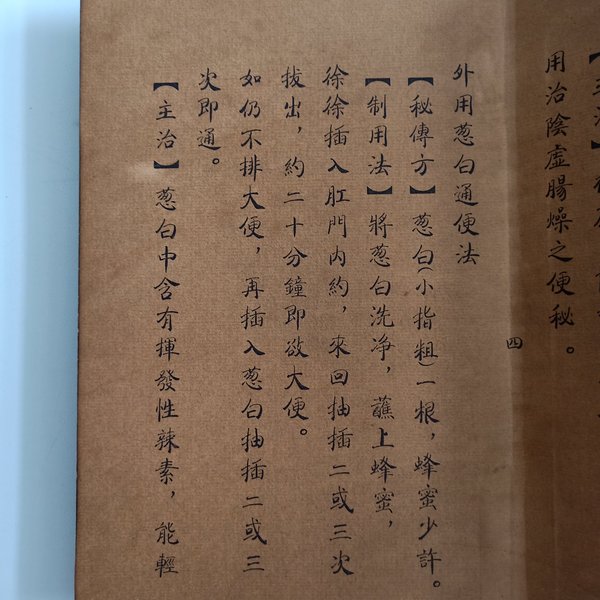 用治陰虛腸燥之便秘。
四
外用葱白通便法
【秘傳方】葱白(小指粗)一根，蜂蜜少許。
【制用法】將葱白洗净，蘸上蜂蜜，
徐徐插入肛門内約，來回抽插二或三次
拔出，約二十分鐘即欲大便。
如仍不排大便，再插入葱白抽插二或三
次即通。
【主治】葱白中含有揮發性辣素，能輕